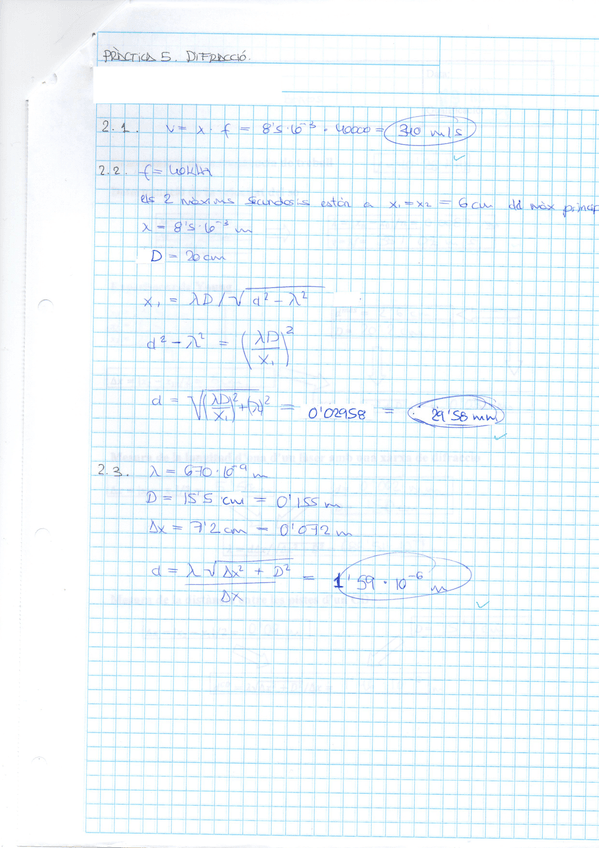 PRÀCTICA 5. DIFRACCIÓ.
2.1. v = λ · f = 8'5·10⁻³ · 40000 = 340 m/s
2.2. f = 40kHz
els 2 màxims secundaris estàn a x₁ = x₂ = 6 cm del màx princip
λ = 8'5·10⁻³ m
D = 20 cm
x₁ = λD / √(d² − λ²)
d² − λ² = (λD/x₁)²
d = √((λD/x₁)² + (λ)²) = 0'02958 = 29'58 mm
2.3. λ = 670·10⁻⁹ m
D = 15'5 cm = 0'155 m
Δx = 7'2 cm = 0'072 m
d = λ √(Δx² + D²) / Δx = 1'59 · 10⁻⁶ m